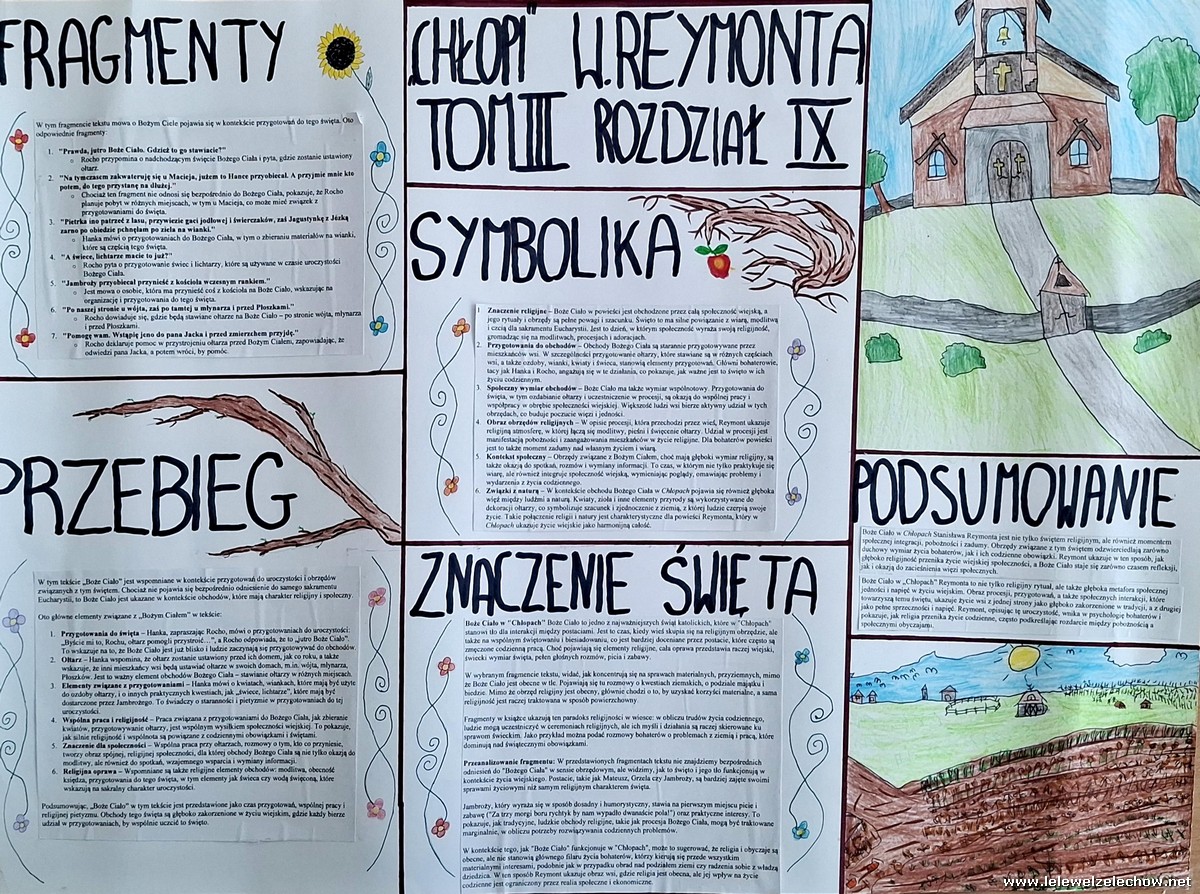 FRAGMENTY
W tym fragmencie tekstu mowa o Bożym Ciele pojawia się w kontekście przygotowań do tego święta. Oto
odpowiednie fragmenty:
1. "Prawda, jutro Boże Ciało. Gdzież to go stawiacie?"
Rocho przypomina o nadchodzącym święcie Bożego Ciała i pyta, gdzie zostanie ustawiony
ołtarz.
2. "Na tymczasem zakwateruję się u Macieja, jużem to Hance przyobiecał. A przyjmie mnie kto
potem, do tego przystanę na dłużej."
Chociaż ten fragment nie odnosi się bezpośrednio do Bożego Ciała, pokazuje, że Rocho
planuje pobyt w różnych miejscach, w tym u Macieja, co może mieć związek z
przygotowaniami do święta.
3. "Pietrka ino patrzeć z lasu, przywiezie gaci jodłowej i świerczaków, zaś Jagustynkę z Józką
zarno po obiedzie pchnęłam po ziela na wianki."
Hanka mówi o przygotowaniach do Bożego Ciała, w tym o zbieraniu materiałów na wianki,
które są częścią tego święta.
4. "A świece, lichtarze macie to już?"
Rocho pyta o przygotowanie świec i lichtarzy, które są używane w czasie uroczystości
Bożego Ciała.
5. "Jambroży przyobiecał przynieść z kościoła wczesnym rankiem."
Jest mowa o osobie, która ma przynieść coś z kościoła na Boże Ciało, wskazując na
organizację i przygotowania do tego święta.
6. "Po naszej stronie u wójta, zaś po tamtej u młynarza i przed Płoszkami."
Rocho dowiaduje się, gdzie będą stawiane ołtarze na Boże Ciało – po stronie wójta, młynarza
i przed Płoszkami.
7. "Pomogę wam. Wstąpię jeno do pana Jacka i przed zmierzchem przyjdę."
Rocho deklaruje pomoc w przystrojeniu ołtarza przed Bożym Ciałem, zapowiadając, że
odwiedzi pana Jacka, a potem wróci, by pomóc.
PRZEBIEG
W tym tekście „Boże Ciało" jest wspomniane w kontekście przygotowań do uroczystości i obrzędów
związanych z tym świętem. Chociaż nie pojawia się bezpośrednio odniesienie do samego sakramentu
Eucharystii, to Boże Ciało jest ukazane w kontekście obchodów, które mają charakter religijny i społeczny.
Oto główne elementy związane z „Bożym Ciałem" w tekście:
1. Przygotowania do święta – Hanka, zapraszając Rocho, mówi o przygotowaniach do uroczystości:
„Byście mi to, Rochu, ołtarz pomogli przystroić...", a Rocho odpowiada, że to „jutro Boże Ciało".
To wskazuje na to, że Boże Ciało jest już blisko i ludzie zaczynają się przygotowywać do obchodów.
2. Ołtarz – Hanka wspomina, że ołtarz zostanie ustawiony przed ich domem, jak co roku, a także
wskazuje, że inni mieszkańcy wsi będą ustawiać ołtarze w swoich domach, m.in. wójta, młynarza,
Płoszków. Jest to ważny element obchodów Bożego Ciała – stawianie ołtarzy w różnych miejscach.
3. Elementy związane z przygotowaniami – Hanka mówi o kwiatach, wiankach, które mają być użyte
do ozdoby ołtarzy, i o innych praktycznych kwestiach, jak „świece, lichtarze", które mają być
dostarczone przez Jambrożego. To świadczy o staranności i pietyzmie w przygotowaniach do tej
uroczystości.
4. Wspólna praca i religijność – Praca związana z przygotowaniami do Bożego Ciała, jak zbieranie
kwiatów, przygotowywanie ołtarzy, jest wspólnym wysiłkiem społeczności wiejskiej. To pokazuje,
jak silnie religijność i wspólnota są powiązane z codziennymi obowiązkami i świętami.
5. Znaczenie dla społeczności – Wspólna praca przy ołtarzach, rozmowy o tym, kto co przyniesie,
tworzy obraz spójnej, religijnej społeczności, dla której obchody Bożego Ciała są nie tylko okazją do
modlitwy, ale również do spotkań, wzajemnego wsparcia i wymiany informacji.
6. Religijna oprawa – Wspomniane są także religijne elementy obchodów: modlitwa, obecność
księdza, przygotowania do tego święta, w tym elementy jak świeca czy wodą święconą, które
wskazują na sakralny charakter uroczystości.
Podsumowując, „Boże Ciało" w tym tekście jest przedstawione jako czas przygotowań, wspólnej pracy i
religijnej pietyzmu. Obchody tego święta są głęboko zakorzenione w życiu wiejskim, gdzie każdy bierze
udział w przygotowaniach, by wspólnie uczcić to święto.
„CHŁOPI" W.REYMONTA
TOM III ROZDZIAŁ IX
SYMBOLIKA
1. Znaczenie religijne – Boże Ciało w powieści jest obchodzone przez całą społeczność wiejską, a
jego rytuały i obrzędy są pełne powagi i szacunku. Święto to ma silne powiązanie z wiarą, modlitwą
i czcią dla sakramentu Eucharystii. Jest to dzień, w którym społeczność wyraża swoją religijność,
gromadząc się na modlitwach, procesjach i adoracjach.
2. Przygotowania do obchodów – Obchody Bożego Ciała są starannie przygotowywane przez
mieszkańców wsi. W szczególności przygotowanie ołtarzy, które stawiane są w różnych częściach
wsi, a także ozdoby, wianki, kwiaty i świeca, stanowią elementy przygotowań. Główni bohaterowie,
tacy jak Hanka i Rocho, angażują się w te działania, co pokazuje, jak ważne jest to święto w ich
życiu codziennym.
3. Społeczny wymiar obchodów – Boże Ciało ma także wymiar wspólnotowy. Przygotowania do
święta, w tym ozdabianie ołtarzy i uczestniczenie w procesji, są okazją do wspólnej pracy i
współpracy w obrębie społeczności wiejskiej. Większość ludzi wsi bierze aktywny udział w tych
obrzędach, co buduje poczucie więzi i jedności.
4. Obraz obrzędów religijnych – W opisie procesji, która przechodzi przez wieś, Reymont ukazuje
religijną atmosferę, w której łączą się modlitwy, pieśni i święcenie ołtarzy. Udział w procesji jest
manifestacją pobożności i zaangażowania mieszkańców w życie religijne. Dla bohaterów powieści
jest to także moment zadumy nad własnym życiem i wiarą.
5. Kontekst społeczny – Obrzędy związane z Bożym Ciałem, choć mają głęboki wymiar religijny, są
także okazją do spotkań, rozmów i wymiany informacji. To czas, w którym nie tylko praktykuje się
wiarę, ale również integruje społeczność wiejską, wymieniając poglądy, omawiając problemy i
wydarzenia z życia codziennego.
6. Związki z naturą – W kontekście obchodu Bożego Ciała w Chłopach pojawia się również głęboka
więź między ludźmi a naturą. Kwiaty, zioła i inne elementy przyrody są wykorzystywane do
dekoracji ołtarzy, co symbolizuje szacunek i zjednoczenie z ziemią, z której ludzie czerpią swoje
życie. Takie połączenie religii i natury jest charakterystyczne dla powieści Reymonta, który w
Chłopach ukazuje życie wiejskie jako harmonijną całość.
ZNACZENIE ŚWIĘTA
Boże Ciało w "Chłopach" Boże Ciało to jedno z najważniejszych świąt katolickich, które w "Chłopach"
stanowi tło dla interakcji między postaciami. Jest to czas, kiedy wieś skupia się na religijnym obrzędzie, ale
także na wspólnym świętowaniu i biesiadowaniu, co jest bardziej doceniane przez postacie, które często są
zmęczone codzienną pracą. Choć pojawiają się elementy religijne, cała oprawa przedstawia raczej wiejski,
świecki wymiar święta, pełen głośnych rozmów, picia i zabawy.
W wybranym fragmencie tekstu, widać, jak koncentrują się na sprawach materialnych, przyziemnych, mimo
że Boże Ciało jest obecne w tle. Pojawiają się tu rozmowy o kwestiach ziemskich, o podziale majątku i
biedzie. Mimo że obrzęd religijny jest obecny, głównie chodzi o to, by uzyskać korzyści materialne, a sama
religijność jest raczej traktowana w sposób powierzchowny.
Fragmenty w książce ukazują ten paradoks religijności w wiosce: w obliczu trudów życia codziennego,
ludzie mogą uczestniczyć w ceremoniach religijnych, ale ich myśli i działania są raczej skierowane ku
sprawom świeckim. Jako przykład można podać rozmowy bohaterów o problemach z ziemią i pracą, które
dominują nad świątecznymi obowiązkami.
Przeanalizowanie fragmentu: W przedstawionych fragmentach tekstu nie znajdziemy bezpośrednich
odniesień do "Bożego Ciała" w sensie obrzędowym, ale widzimy, jak to święto i jego tło funkcjonują w
kontekście życia wiejskiego. Postacie, takie jak Mateusz, Grzela czy Jambroży, są bardziej zajęte swoimi
sprawami życiowymi niż samym religijnym charakterem święta.
Jambroży, który wyraża się w sposób dosadny i humorystyczny, stawia na pierwszym miejscu picie i
zabawę ("Za trzy morgi boru rychtyk by nam wypadło dwanaście pola!") oraz praktyczne interesy. To
pokazuje, jak tradycyjne, ludzkie obchody religijne, takie jak procesja Bożego Ciała, mogą być traktowane
marginalnie, w obliczu potrzeby rozwiązywania codziennych problemów.
W kontekście tego, jak "Boże Ciało" funkcjonuje w "Chłopach", może to sugerować, że religia i obyczaje są
obecne, ale nie stanowią głównego filaru życia bohaterów, którzy kierują się przede wszystkim
materialnymi interesami, podobnie jak w przypadku obrad nad podziałem ziemi czy radzenia sobie z władzą
dziedzica. W ten sposób Reymont ukazuje obraz wsi, gdzie religia jest obecna, ale jej wpływ na życie
codzienne jest ograniczony przez realia społeczne i ekonomiczne.
PODSUMOWANIE
Boże Ciało w Chłopach Stanisława Reymonta jest nie tylko świętem religijnym, ale również momentem
społecznej integracji, pobożności i zadumy. Obrzędy związane z tym świętem odzwierciedlają zarówno
duchowy wymiar życia bohaterów, jak i ich codzienne obowiązki. Reymont ukazuje w ten sposób, jak
głęboko religijność przenika życie wiejskiej społeczności, a Boże Ciało staje się zarówno czasem refleksji,
jak i okazją do zacieśnienia więzi społecznych.
Boże Ciało w „Chłopach" Reymonta to nie tylko religijny rytuał, ale także głęboka metafora społecznej
jedności i napięć w życiu wiejskim. Obraz procesji, przygotowań, a także społecznych interakcji, które
towarzyszą temu świętu, ukazuje życie wsi z jednej strony jako głęboko zakorzenione w tradycji, a z drugiej
jako pełne sprzeczności i napięć. Reymont, opisując tę uroczystość, wnika w psychologię bohaterów i
pokazuje, jak religia przenika życie codzienne, często podkreślając rozdarcie między pobożnością a
społecznymi obyczajami.
www.lelewelzelechow.net